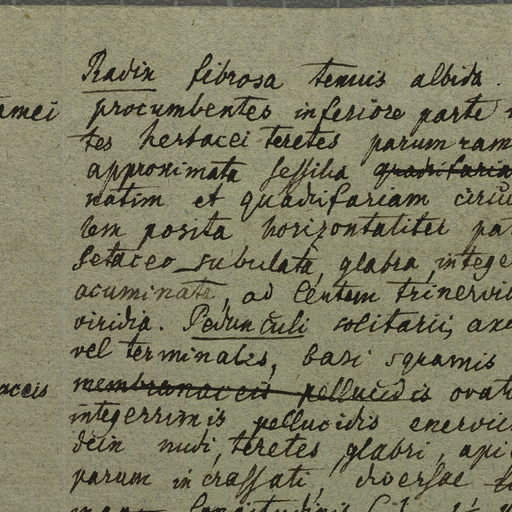 Radix fibrosa tenuis albida.
procumbentes inferiore parte
tes herbacei teretes parum ram
approximata sessilia quadrifaria
natim et quadrifariam circu
lem posita horizontaliter pat
setaceo-subulata, glabra, intege
acuminata, ad lentem trinervia
viridia. Pedunculi solitarii, axe
vel terminales, basi sqamis
membranaceis pellucidis ovat
integerrimis pellucidis enervi
dein nudi, teretes, glabri, api
parum incrassati, diversae